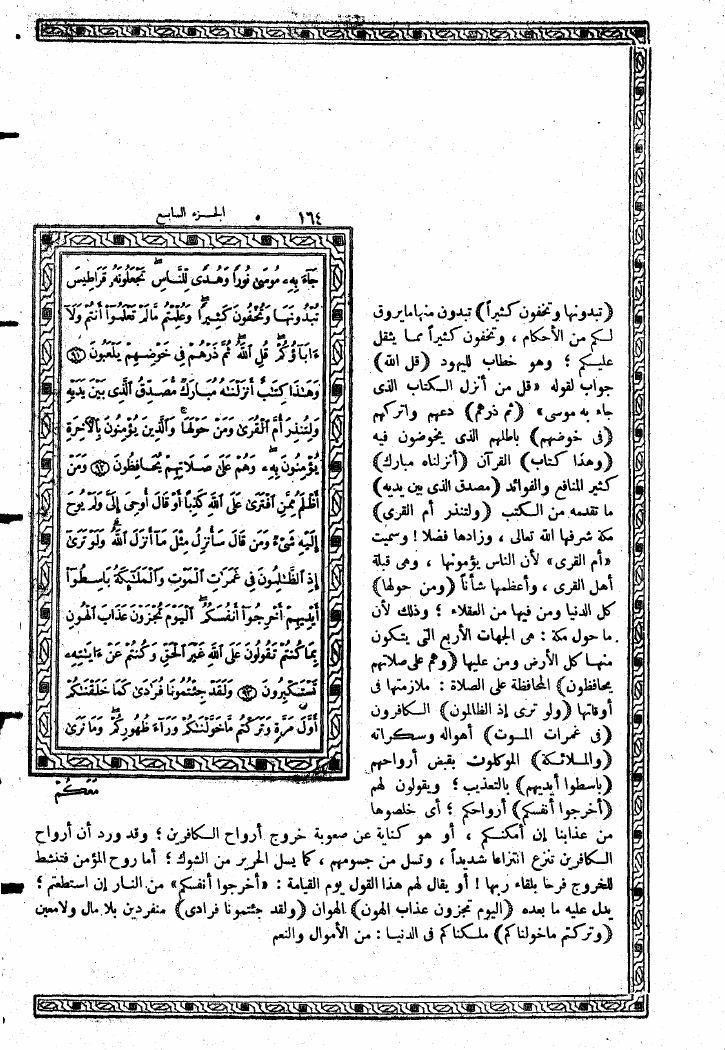 ١٦٤ الجـزء السابع
جَآءَ بِهِۦ مُوسَىٰ نُورًا وَهُدًى لِّلنَّاسِ ۖ تَجْعَلُونَهُۥ قَرَاطِيسَ
تُبْدُونَهَا وَتُخْفُونَ كَثِيرًا ۖ وَعُلِّمْتُم مَّا لَمْ تَعْلَمُوٓا۟ أَنتُمْ وَلَآ
ءَابَآؤُكُمْ ۖ قُلِ ٱللَّهُ ۖ ثُمَّ ذَرْهُمْ فِى خَوْضِهِمْ يَلْعَبُونَ ﴿٩١﴾
وَهَٰذَا كِتَٰبٌ أَنزَلْنَٰهُ مُبَارَكٌ مُّصَدِّقُ ٱلَّذِى بَيْنَ يَدَيْهِ
وَلِتُنذِرَ أُمَّ ٱلْقُرَىٰ وَمَنْ حَوْلَهَا ۚ وَٱلَّذِينَ يُؤْمِنُونَ بِٱلْأَخِرَةِ
يُؤْمِنُونَ بِهِۦ ۖ وَهُمْ عَلَىٰ صَلَاتِهِمْ يُحَافِظُونَ ﴿٩٢﴾ وَمَنْ
أَظْلَمُ مِمَّنِ ٱفْتَرَىٰ عَلَى ٱللَّهِ كَذِبًا أَوْ قَالَ أُوحِىَ إِلَىَّ وَلَمْ يُوحَ
إِلَيْهِ شَىْءٌ وَمَن قَالَ سَأُنزِلُ مِثْلَ مَآ أَنزَلَ ٱللَّهُ ۗ وَلَوْ تَرَىٰٓ
إِذِ ٱلظَّٰلِمُونَ فِى غَمَرَٰتِ ٱلْمَوْتِ وَٱلْمَلَٰٓئِكَةُ بَاسِطُوٓا۟
أَيْدِيهِمْ أَخْرِجُوٓا۟ أَنفُسَكُمُ ۖ ٱلْيَوْمَ تُجْزَوْنَ عَذَابَ ٱلْهُونِ
بِمَا كُنتُمْ تَقُولُونَ عَلَى ٱللَّهِ غَيْرَ ٱلْحَقِّ وَكُنتُمْ عَنْ ءَايَٰتِهِۦ
تَسْتَكْبِرُونَ ﴿٩٣﴾ وَلَقَدْ جِئْتُمُونَا فُرَٰدَىٰ كَمَا خَلَقْنَٰكُمْ
أَوَّلَ مَرَّةٍ وَتَرَكْتُم مَّا خَوَّلْنَٰكُمْ وَرَآءَ ظُهُورِكُمْ ۖ وَمَا نَرَىٰ
مَعَكُمْ
(تبدونها وتخفون كثيراً) تبدون منها ما يروق
لـكم من الأحكام ، وتخفون كثيراً ممـا يثقل
عليـكم ؛ وهو خطاب لليهود (قل الله)
جواب لقوله «قل من أنزل الـكتاب الذى
جاء به موسى» (ثم ذرهم) دعهم واتركهم
(فى خوضهم) باطلهم الذى يخوضون فيه
(وهذا كتاب) القرآن (أنزلناه مبارك)
كثير المنافع والفوائد (مصدق الذى بين يديه)
ما تقدمه من الـكتب (ولتنذر أم القرى)
مكة شرفها الله تعالى ، وزادها فضلا ! وسميت
«أم القرى» لأن الناس يؤمونها ، وهى قبلة
أهل القرى ، وأعظمها شأناً (ومن حولها)
كل الدنيا ومن فيها من العقلاء ؛ وذلك لأن
ما حول مكة : هى الجهات الأربع التى يتـكون
منهـا كل الأرض ومن عليها (وهم على صلاتهم
يحافظون) المحافظة على الصلاة : ملازمتها فى
أوقاتها (ولو ترى إذ الظالمون) الـكافرون
(فى غمرات المـوت) أهواله وسـكراته
(والمـلائـكة) الموكلون بقبض أرواحهم
(باسطوا أيديهم) بالتعذيب ؛ ويقولون لهم
(أخرجوا أنفسكم) أرواحكم ؛ أى خلصوها
من عذابنا إن أمكنـكم ، أو هو كناية عن صعوبة خروج أرواح الـكافرين ؛ وقد ورد أن أرواح
الـكافرين تنزع انتزاعا شديداً ، وتسل من جسومهم ، كما يسل الحرير من الشوك ؛ أما روح المؤمن فتنشط
للخروج فرحا بلقاء ربها ! أو يقال لهم هذا القول يوم القيامة : «أخرجوا أنفسكم» من النـار إن استطعتم ؛
يدل عليه ما بعده (اليوم تجزون عذاب الهون) الهوان (ولقد جئتمونا فرادى) منفردين بلا مال ولا معين
(وتركتم ما خولناكم) ملـكناكم فى الدنيـا : من الأموال والنعم